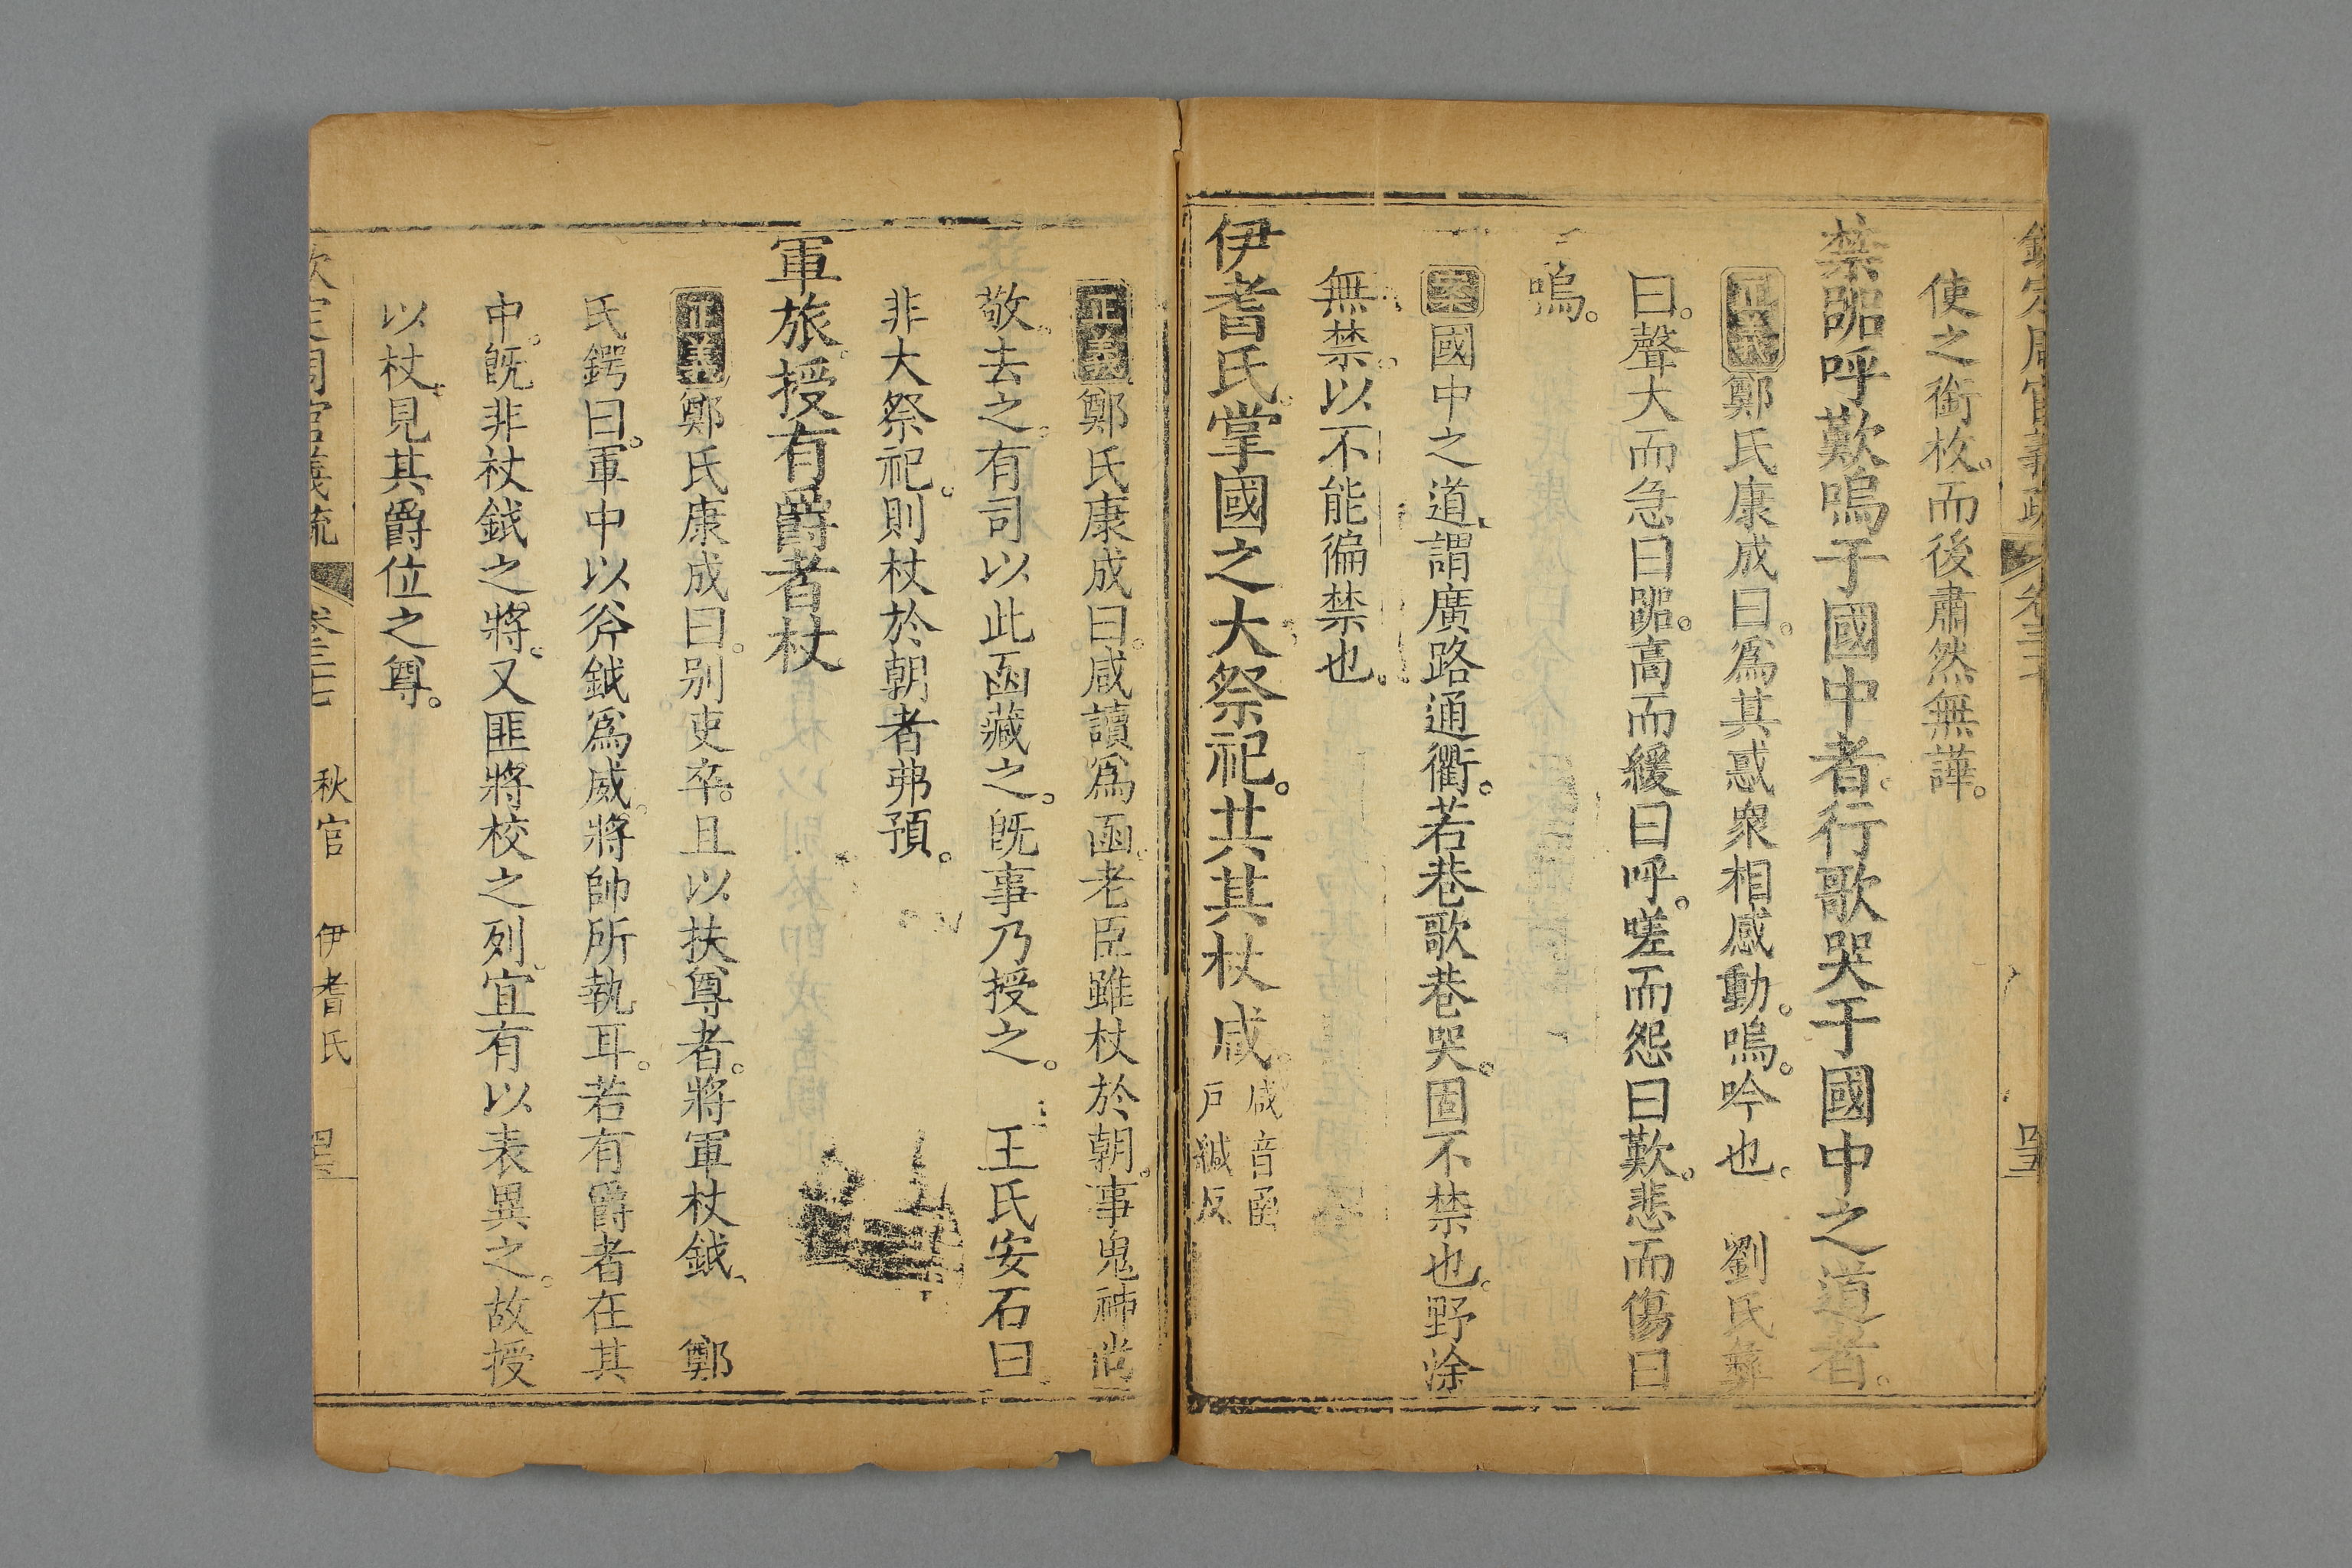 欽定周官義疏 卷三十
使之銜枚。而後肅然無譁。
禁嘂呼歎嗚于國中者。行歌哭于國中之道者。
正義鄭氏康成曰。爲其惑衆相感動。嗚。吟也。 劉氏彝
曰。聲大而急曰嘂。高而緩曰呼。嗟而怨曰歎。悲而傷曰
嗚。
案國中之道、謂廣路通衢。若巷歌巷哭。固不禁也。野涂
無禁。以不能徧禁也。
伊耆氏掌國之大祭祀。共其杖咸。咸音函
戶緘反
正義鄭氏康成曰。咸讀爲函。老臣雖杖於朝。事鬼神尚
敬。去之。有司以此函藏之。旣事乃授之。 王氏安石曰
非大祭祀。則杖於朝者弗預。
軍旅。授有爵者杖
正義鄭氏康成曰。別吏卒。且以扶尊者。將軍杖鉞、 鄭
氏鍔曰。軍中以斧鉞爲威。將帥所執耳。若有爵者在其
中。旣非杖鉞之將。又匪將校之列。宜有以表異之。故授
以杖。見其爵位之尊。
欽定周官義疏 卷三十七 秋官 伊耆氏